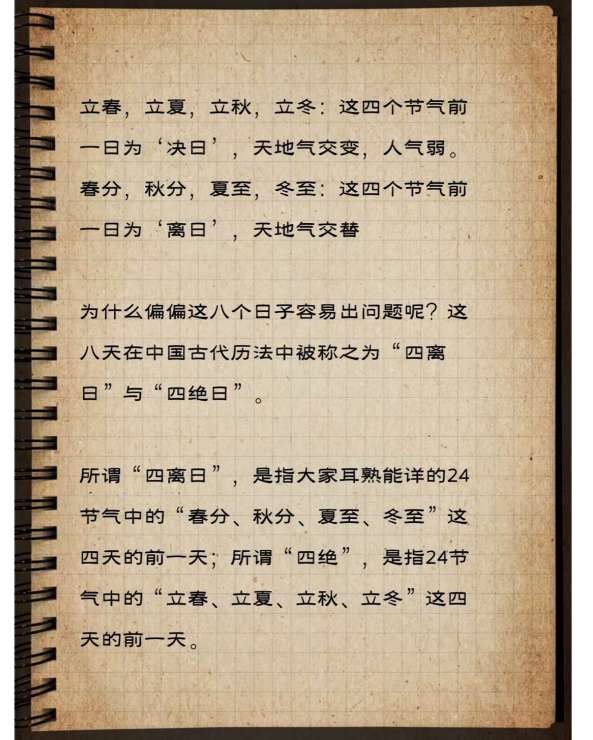 立春，立夏，立秋，立冬：这四个节气前
一日为‘决日’，天地气交变，人气弱。
春分，秋分，夏至，冬至：这四个节气前
一日为‘离日’，天地气交替
为什么偏偏这八个日子容易出问题呢？这
八天在中国古代历法中被称之为“四离
日”与“四绝日”。
所谓“四离日”，是指大家耳熟能详的24
节气中的“春分、秋分、夏至、冬至”这
四天的前一天；所谓“四绝”，是指24节
气中的“立春、立夏、立秋、立冬”这四
天的前一天。